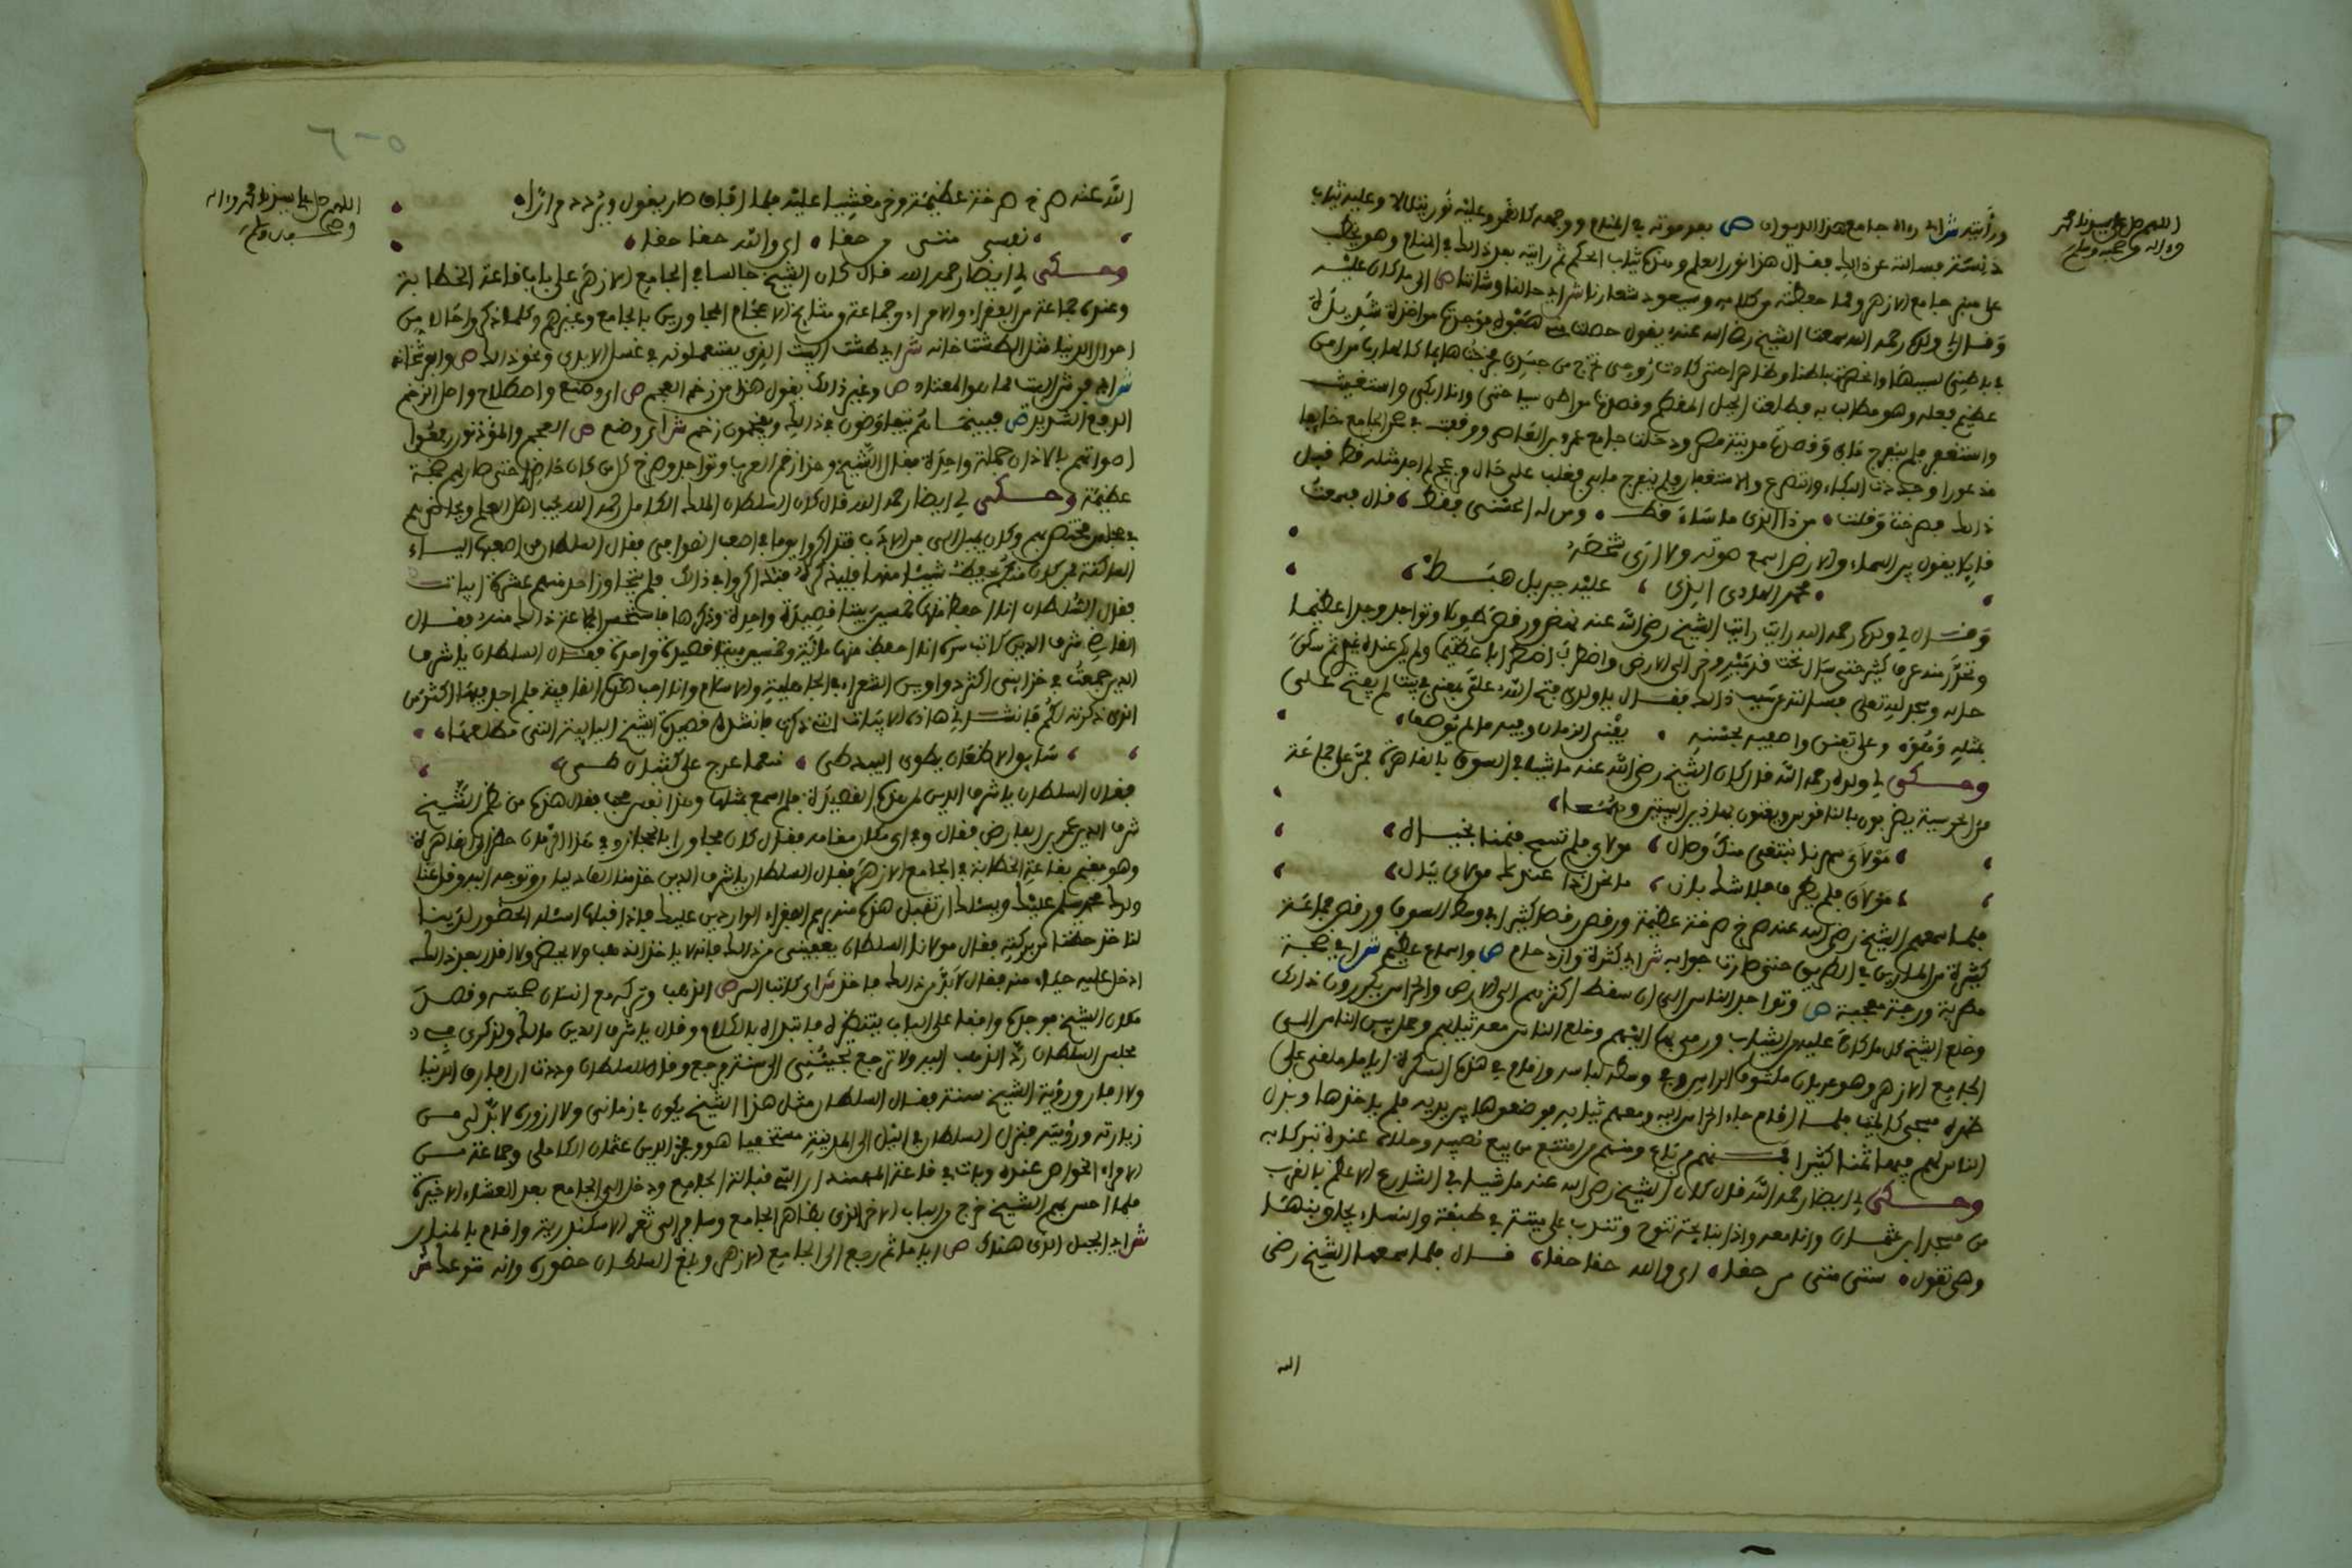 اللهم صل على سيدنا محمد
وءاله وصحبه وسلم
ورأيته ش اى رءاه جامع هذا الديوان ص بعد موته في المنام ووجهه كالقمر وعليه نور يتلالا وعليه ثياب
دنسة فسألته عن ذلك فقال هذا نور العلم وهذه ثياب الحكم ثم رأيته بعد ذلك في المنام وهو يخطب
على منبر جامع الازهر ومما حفظته من كلامه وسيعود شعارنا ش اى حالنا وشأننا ص الى ما كان عليه
وقال لى ولده رحمه الله سمعت الشيخ رضي الله عنه يقول حصلت مني هفوة فوجدت مؤاخذة شديدة
في باطني بسببها وانحصرت باطنا وظاهرا حتى كادت روحي تخرج من جسدي فخرجت هايما كالهارب من امر
عظيم فعله وهو مطالب به فطلعت الجبل المقطم وقصدت مواطن سياحتي وانا ابكي واستغيث
واستغفر فلم ينفرج ما بي وقصدت مدينة مصر ودخلت جامع عمرو بن العاص ووقفت في صحن الجامع خايفا
مذعورا وجددت البكاء والتضرع والاستغفار فلم ينفرج ما بي فغلب علي حال مزعج لم اجد مثله قط قبل
ذلك فصرخت وقلت من ذا الذي ما ساء قط ومن له الحسنى فقط قال فسمعت
قايلا يقول بين السماء والارض اسمع صوته ولا ارى شخصه
محمد الهادى الذى عليه جبريل هبط
وقال لي ولده رحمه الله رايت الشيخ رضي الله عنه نهض ورقص طويلا وتواجد وجدا عظيما
وتحدر منه عرق كثير حتى سال تحت قدميه وخر الى الارض واضطرب اضطرابا عظيما ولم يكن عنده غيري ثم سكن
حاله وسجد لله تعلى فسالته عن سبب ذلك فقال يا ولدي فتح الله علي بمعنى في بيت لم يفتح علي
بمثله وهو وعلى تفنن واصفيه بحسنه يفنى الزمان وفيه ما لم يوصف
وحكى لي ولده رحمه الله قال كان الشيخ رضي الله عنه ماشيا في السوق بالقاهرة فمر على جماعة
من الحرسية يضربون بالناقوس ويغنون بهاذين البيتين وهما
مولاي سهرنا نبتغي منك وصال مولاي فلم تسمح فنمنا بخيال
مولاي فلم يطرق فلا شك بان ما نحن اذا عندك مولاي ببال
فلما سمعهم الشيخ رضي الله عنه صرخ صرخة عظيمة ورقص رقصا كثيرا في وسط السوق ورقص جماعة
كثيرة من المارين في الطريق حتى صارت جولة ش اى كثرة وازدحام ص واسماع عظيم ش اى ضجة
مطربة ورجة معجبة ص وتواجد الناس الى ان سقط اكثرهم الى الارض والحراس يكررون ذلك
وخلع الشيخ كل ما كان عليه من الثياب ورمى بها اليهم وخلع الناس معه ثيابهم وحمل بين الناس الى
الجامع الازهر وهو عريان مكشوف الراس وفي وسطه لباسه واقام في هذه السكرة اياما ملقى على
ظهره مسجى كالميت فلما افاق جاء الحراس اليه ومعهم ثيابه فوضعوها بين يديه فلم ياخذها وبذل
الناس لهم فيها ثمنا كثيرا فمنهم من باع ومنهم من امتنع من بيع نصيبه وخلاه عنده تبركا به
وحكى لي ايضا رحمه الله قال كان الشيخ رضي الله عنه ماشيا في الشارع الاعظم بالقرب
من مسجد ابن عثمان وانا معه واذا نايحة تنوح وتندب على ميتة في طبقة والنساء يجاوبنها
وهي تقول ستي متي من حقا اى والله حقا حقا قال فلما سمعها الشيخ رضي
الله
٥٠٦
اللهم صل على سيدنا محمد وءاله
وصحبه وسلم
الله عنه صرخ صرخة عظيمة وخر مغشيا عليه فلما افاق صار يقول ويردد مرارا
نفسي متي من حقا اى والله حقا حقا
وحكى لي ايضا رحمه الله قال كان الشيخ جالسا في الجامع الازهر على باب قاعة الخطابة
وعنده جماعة من الفقراء والامراء وجماعة من مشايخ الاعجام المجاورين بالجامع وغيرهم وكلما ذكروا حالا من
احوال الدنيا مثل الطشتخانه ش اى طشت البيت الذي يستعملونه في غسل الايدي ونحو ذلك ص والفرشخانه
ش اى فرش البيت مما هو المعتاد ص وغير ذلك يقول هذا من زخم العجم ص اى وضع واصطلاح واصل الزخم
الدفع الشديد ص فبينما هم يتفاوضون في ذلك ويفخمون زخم ش اى وضع ص العجم والمؤذنون رفعوا
اصواتهم بالاذان جملة واحدة فقال الشيخ وهذا زخم العرب وتواجد وصرخ كل من كان حاضرا حتى صار لهم ضجة
عظيمة وحكى لي ايضا رحمه الله قال كان السلطان الملك الكامل رحمه الله يحب اهل العلم ويحاضرهم
في مجلس مختص بهم وكان يميل الى فن الادب فتذاكروا يوما في اصعب القوافي فقال السلطان من اصعبها الياء
الساكنة فمن كان منكم يحفظ شيئا منها فليذكره فتذاكروا في ذلك فلم يتجاوز احد منهم عشرة ابيات
فقال السلطان انا احفظ منها خمسين بيتا قصيدة واحدة وذكرها فاستحسن الجماعة ذلك منه فقال
القاضي شرف الدين كاتب سره انا احفظ منها مائة وخمسين بيتا قصيدة واحدة فقال السلطان يا شرف
الدين جمعت في خزاينى اكثر دواوين الشعراء في الجاهلية والاسلام وانا احب هذه القافية فلم اجد فيها اكثر من
الذي ذكرته لكم فانشدنى هاذه الابيات التي ذكرت فانشده قصيدة الشيخ اليايية التي مطلعها
سايق الاظعان يطوى البيد طي منعما عرج على كثبان طي
فقال السلطان يا شرف الدين لمن هذه القصيدة فلم اسمع بمثلها وهذا نفس محب فقال هذه من نظم الشيخ
شرف الدين عمر بن الفارض فقال وفى اى مكان مقامه فقال كان مجاورا بالحجاز وفي هذا الزمان حضر الى القاهرة
وهو مقيم بقاعة الخطابة في الجامع الازهر فقال السلطان يا شرف الدين خذ منا الف دينار وتوجه اليه وقل عنا
ولدك محمد يسلم عليك ويسئلك ان تقبل هذه منه برسم الفقراء الواردين عليك فاذا قبلها اسئله الحضور لدينا
لناخذ حظنا من بركته فقال مولانا السلطان يعفينى من ذلك فانه لا ياخذ الذهب ولا يحضر ولا اقدر بعد ذلك
ادخل عليه حياء منه فقال لا بد من ذلك فاخذ ش اى كاتب السر ص الذهب وتركه مع انسان صحبته وقصد
مكان الشيخ فوجده واقفا على الباب ينتظره فابتداه بالكلام وقال يا شرف الدين مالك ولذكري في
مجلس السلطان رد الذهب اليه ولا ترجع تجيئنى الى سنة فرجع وقال للسلطان وددت ان افارق الدنيا
ولا افارق رؤية الشيخ سنة فقال السلطان مثل هذا الشيخ يكون في زمانى ولا ازوره لا بد لى من
زيارته ورؤيته فنزل السلطان في الليل الى المدينة مستخفيا هو وفخر الدين عثمان الكاملى وجماعة من
الامراء الخواص عنده وبات في قاعة المهمندار التي قبالة الجامع ودخل الى الجامع بعد العشاء الاخيرة
فلما احس بهم الشيخ خرج من الباب الاخر الذى بظاهر الجامع وسافر الى ثغر الاسكندرية واقام بالمنار
ش اى الجبل الذى هناك ص اياما ثم رجع الى الجامع الازهر وبلغ السلطان حضوره وانه متوعك ش